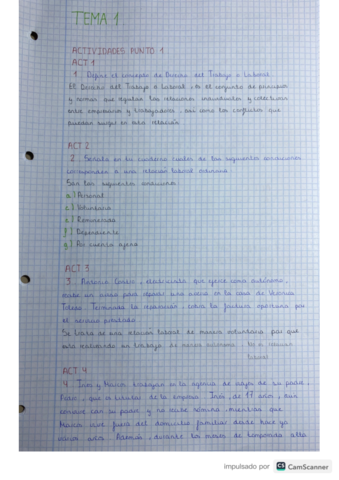 TEMA 1
ACTIVIDADES PUNTO 1
ACT 1
1. Define el concepto de Derecho del Trabajo o Laboral
El Derecho del Trabajo o Laboral es el conjunto de principios
y normas que regulan las relaciones individuales y colectivas
entre empresarios y trabajadores, así como los conflictos que
puedan surgir en esta relación
ACT 2
2. Señala en tu cuaderno cuáles de las siguientes condiciones
corresponden a una relación laboral ordinaria
Son las siguientes
a) Personal
c) Voluntaria
e) Remunerada
f) Dependiente
g) Por cuenta ajena
ACT 3
3. Antonio, electricista que ejerce como autónomo,
para reparar una avería en la casa de Verónica
Toledo. Terminada la reparación, cobra la factura oportuna por
el servicio prestado
Se trata de una relación laboral de manera voluntaria por que
está realizando un trabajo
ACT 4
4. Juan y Marcos trabajan en la agencia de viajes de su padre,
Pedro, que es titular de la empresa. Juan, de 17 años,
convive con su padre y no recibe nómina, mientras que
Marcos vive fuera del domicilio familiar desde hace ya
varios años. Además, durante los meses de temporada alta
impulsado por CS CamScanner